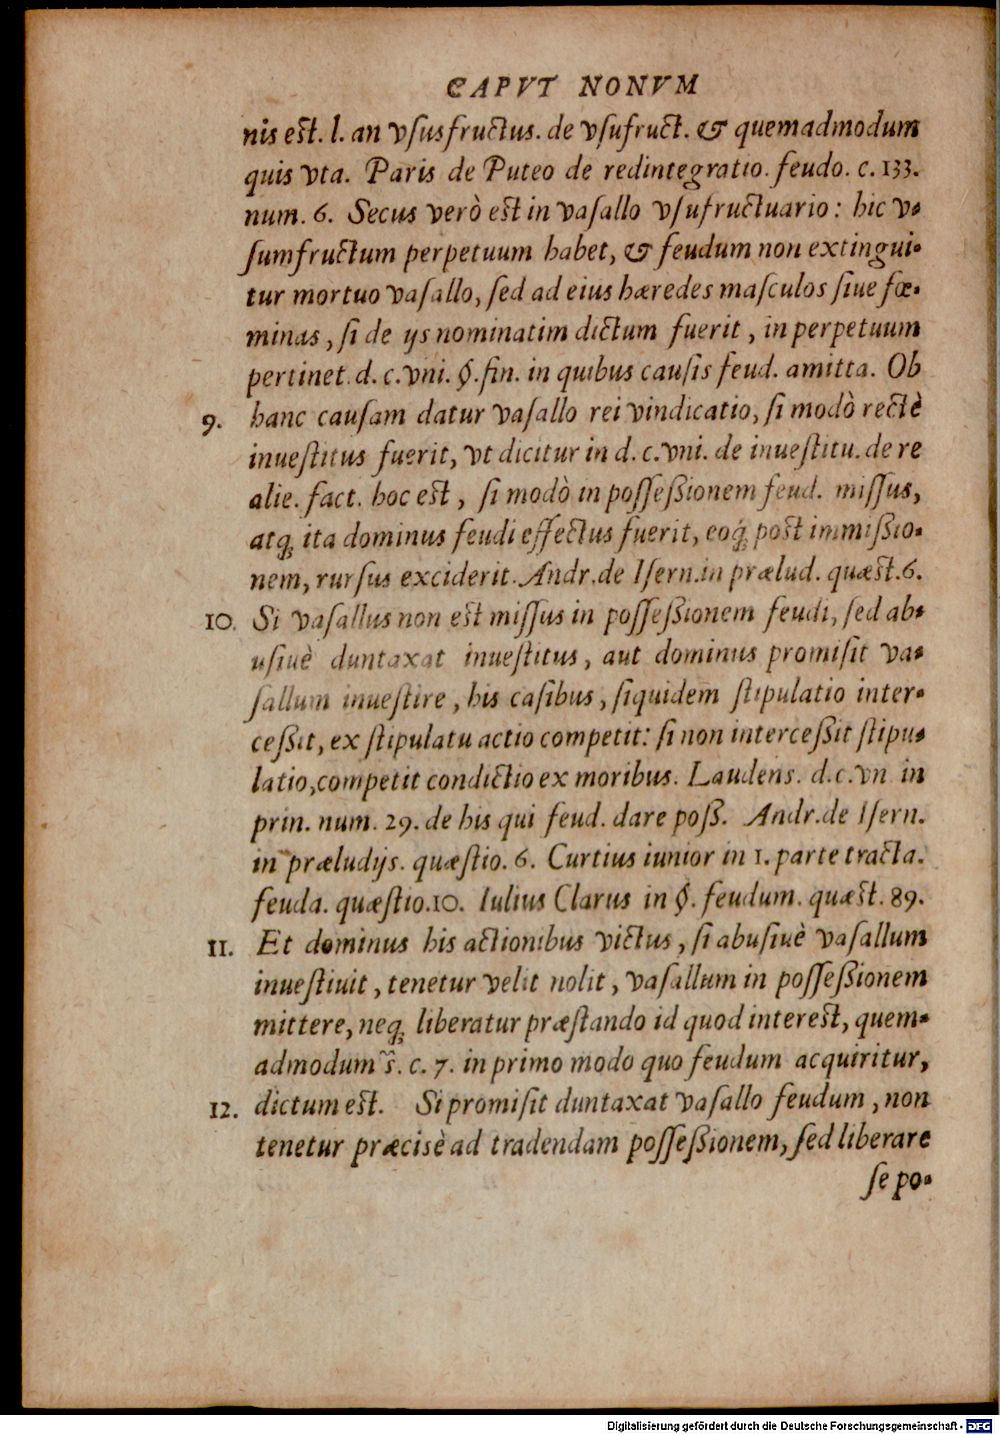 CAPVT NONVM
nis est. l. an vſusfructus. de vſufruct. & quemadmodum
quis vta. Paris de Puteo de redintegratio. feudo. c. 133.
num. 6. Secus verò est in vaſallo vſufructuario: hic v-
ſumfructum perpetuum habet, & feudum non extingui-
tur mortuo vaſallo, ſed ad eius hæredes maſculos ſiue fœ-
minas, ſi de ijs nominatim dictum fuerit, in perpetuum
pertinet. d. c. vni. §. fin. in quibus cauſis feud. amitta. Ob
9. hanc cauſam datur vaſallo rei vindicatio, ſi modò rectè
inueſtitus fuerit, vt dicitur in d. c. vni. de inueſtitu. de re
alie. fact. hoc est, ſi modò in poſſeßionem feud. miſſus,
atq́ ita dominus feudi effectus fuerit, eoq́ post immißio-
nem, rurſus exciderit. Andr. de Iſern. in prælud. quæst. 6.
10. Si vaſallus non est miſſus in poſſeßionem feudi, ſed ab-
uſiuè duntaxat inueſtitus, aut dominus promiſit va-
ſallum inueſtire, his caſibus, ſiquidem ſtipulatio inter-
ceßit, ex ſtipulatu actio competit: ſi non interceßit ſtipu-
latio, competit condictio ex moribus. Laudens. d. c. vn in
prin. num. 29. de his qui feud. dare poß. Andr. de Iſern.
in præludijs. quæſtio. 6. Curtius iunior in 1. parte tracta.
feuda. quæſtio. 10. Iulius Clarus in §. feudum. quæst. 89.
11. Et dominus his actionibus victus, ſi abuſiuè vaſallum
inueſtiuit, tenetur velit nolit, vaſallum in poſſeßionem
mittere, neq́ liberatur præſtando id quod interest, quem-
admodum s̃. c. 7. in primo modo quo feudum acquiritur,
12. dictum est. Si promiſit duntaxat vaſallo feudum, non
tenetur præcisè ad tradendam poſſeßionem, ſed liberare
ſe po-
Digitalisierung gefördert durch die Deutsche Forschungsgemeinschaft - DFG